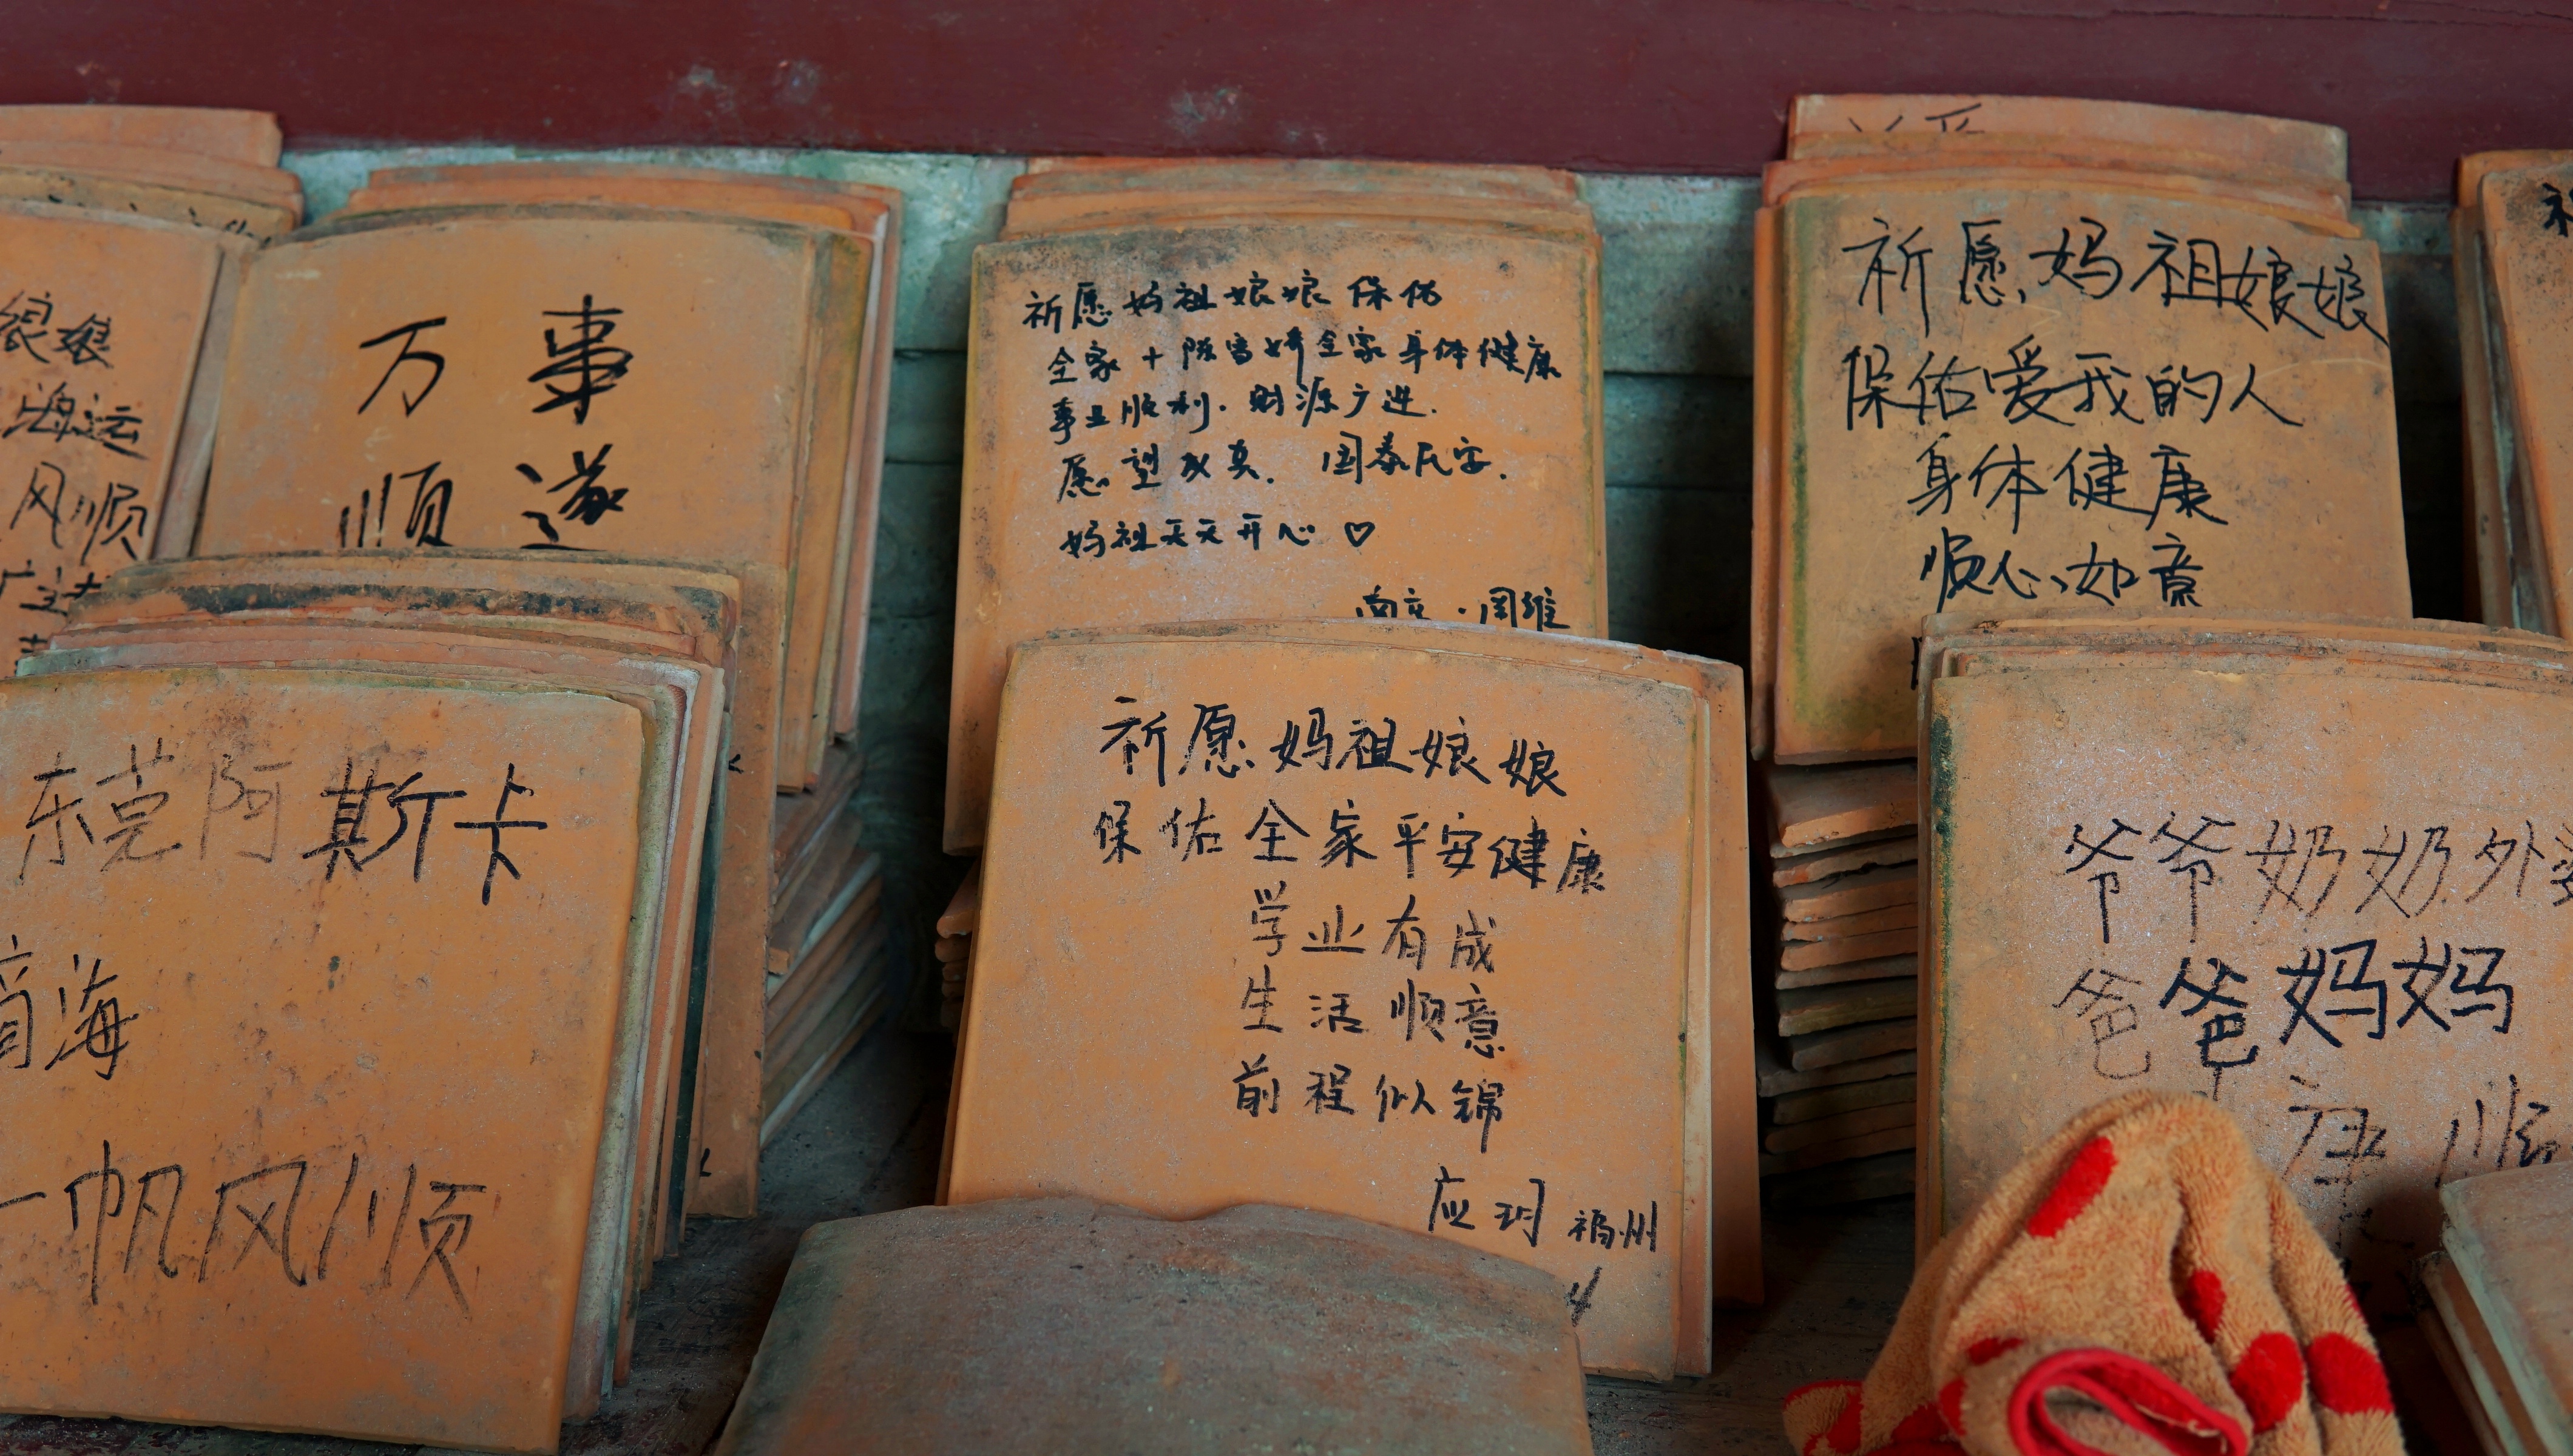 娘娘
海运
风顺
万事
顺遂
祈愿妈祖娘娘保佑
全家+陈雪娇全家身体健康
事业顺利.财源广进.
愿望成真.国泰民安.
妈祖天天开心♡
南京·周维
祈愿妈祖娘娘
保佑爱我的人
身体健康
顺心、如意
东莞阿斯卡
海
一帆风顺
祈愿妈祖娘娘
保佑全家平安健康
学业有成
生活顺意
前程似锦
应玥 福州
爷爷奶奶外婆
爸爸妈妈
康顺